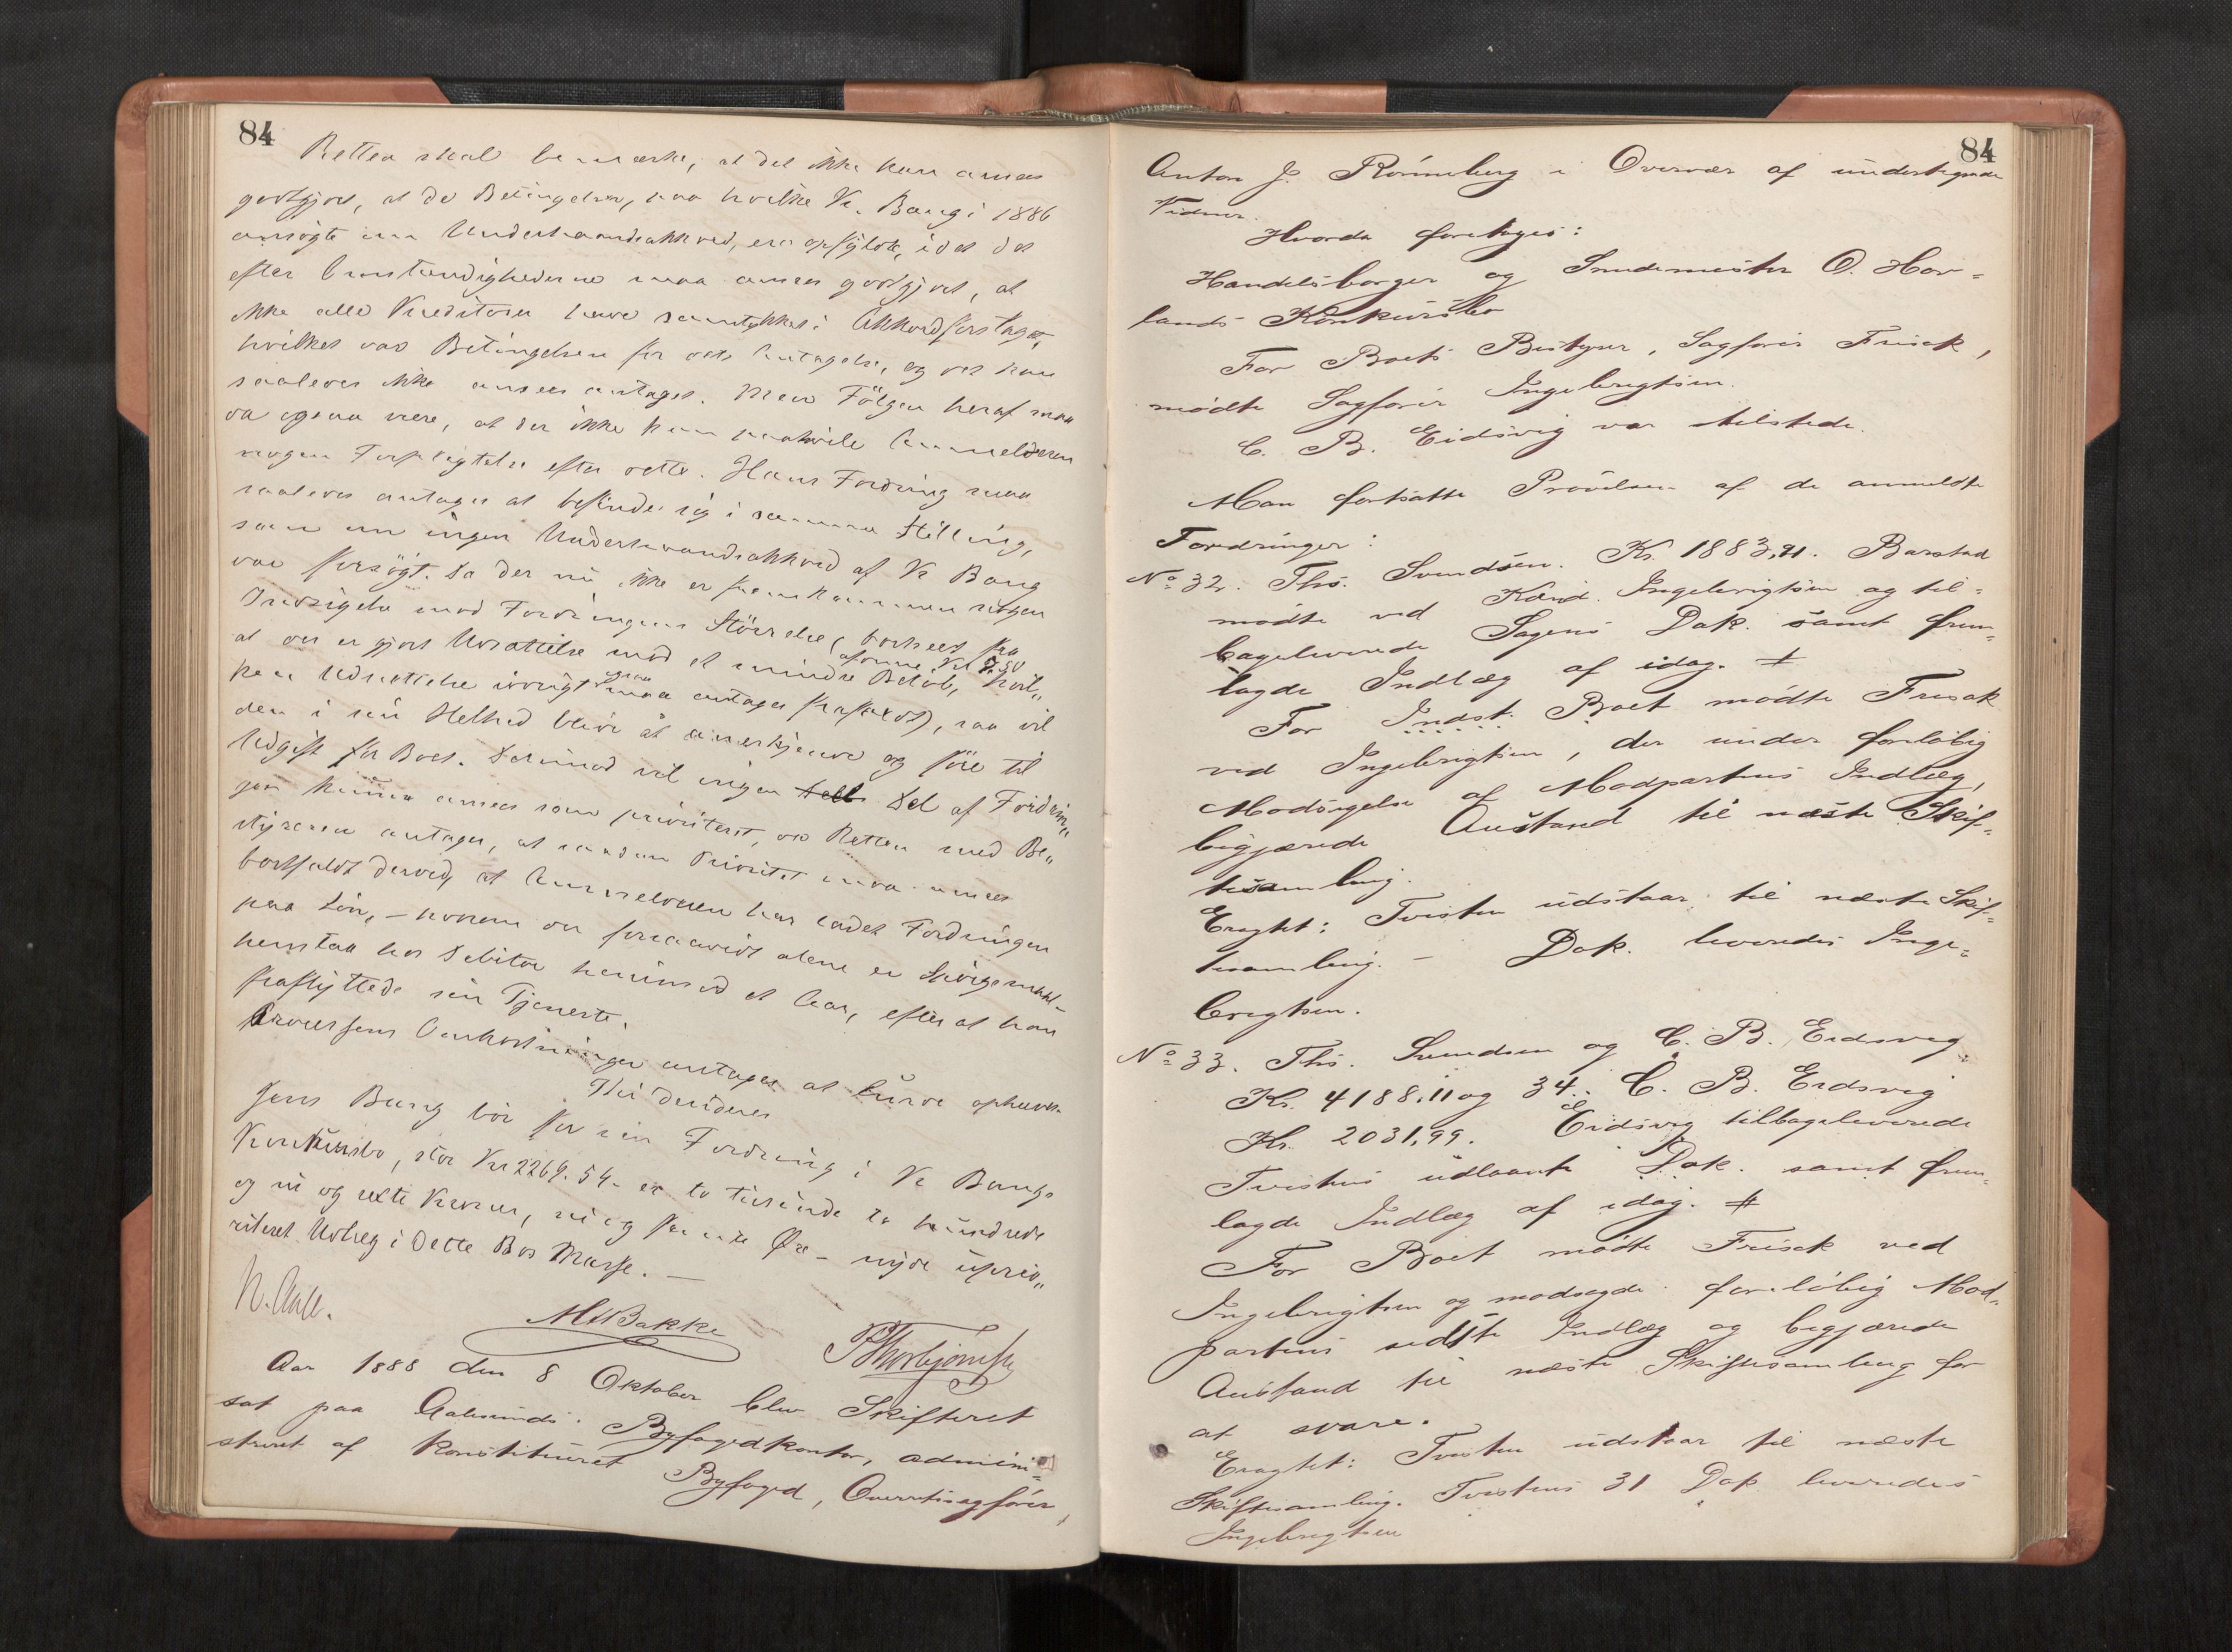 84
Retten skal bemærke, at det ikke kan ansees
godtgjort, at de Betingelser, paa hvilke K. Bang i 1886
ansøgte om Underhaandsakkord, ere opfyldte, idet det
efter Omstændighederne maa ansees godtgjort, at
ikke alle Kreditorer have samtykket i Akkordforslaget,
hvilket var Betingelsen for dets Antagelse, og det kan
saaledes ikke ansees antaget. Men Følgen heraf maa
da ogsaa være, at der ikke kan paahvile Anmelderen
nogen Forpligtelse efter dette. Hans Fordring maa
saaledes antages at befinde sig i samme Stilling,
som om ingen Underhaandsakkord af K Bang
var forsøgt. Da der nu ikke er fremkommen nogen
Indsigelse mod Fordringens Størrelse (bortseet fra
at der er gjort Udsættelse mod et mindre Beløb, hvil„
ken Udsættelse iøvrigt ogsaa maa antages frafaldt), saa vil
den i sin Helhed blive at anerkjende og føre til
Udgift for Boet. Derimod vil ingen Del af Fordrin„
gen kunne ansees som prioriteret, da Retten med Be„
styreren antager, at saadan Prioritet maa ansees
bortfaldt derved, at Anmelderen har ladet Fordringen
paa Løn, – hvorom der forsaavidt alene er Spørgsmaal –
henstaa hos Debitor henimod et Aar, efter at han
fraflyttede sin Tjeneste.
Processens Omkostninger antages at burde ophæves.
Thi decideres
Jens Bang bør for sin Fordring i K Bangs
Konkursbo, stor Kr 2269.54 – er to tusinde to hundrede
og ni og sexti Kroner, ni og femti Øre – nyde uprio„
riteret Udlæg i dette Bos Masse. –
N. Aall.
M Bakke
P Thorbjørnsen
Aar 1888 den 8 Oktober blev Skifteret
sat paa Aalesunds Byfogedkontor, admini=
streret af Konstitueret Byfoged, Overretssagfører,
84
Anton J. Rønneberg i Overvær af undertegnede
Vidner.
Hvorda foretoges:
Handelsborger og Smedemester O. Hov=
lands Konkursbo
For Boets Bestyrer, Sagfører Frisak,
mødte Sagfører Ingebrigtsen.
C. B. Eidsvig var tilstede.
Man fortsatte Prøvelsen af de anmeldte
Fordringer:
No 32. Ths. Svendsen. Kr. 1883,91. Barstad
mødte ved Kand. Ingebrigtsen og til=
bageleverede Sagens Dok. samt frem=
lagde Indlæg af idag. ‡
For Indst. Boet mødte Frisak
ved Ingebrigtsen, der under foreløbig
Modsigelse af Modpartens Indlæg,
begjærede Anstand til næste Skif=
tesamling.
Eragtet: Tvisten udstaar til næste Skif=
tesamling. – Dok. leveredes Inge=
brigtsen.
No 33. Ths. Svendsen og C. B. Eidsvig
Kr. 4188.11 og 34. C. B. Eidsvig
Kr. 2031,99. Eidsvig tilbageleverede
Tvistens udlaante Dok. samt frem=
lagde Indlæg af idag. ‡
For Boet mødte Frisak ved
Ingebrigtsen og modsagde foreløbig Mod=
partens sidste Indlæg og begjærede
Anstand til næste Skiftesamling for
at svare.
Eragtet: Tvisten udstaar til næste
Skiftesamling. Tvistens 31 Dok leveredes
Ingebrigtsen